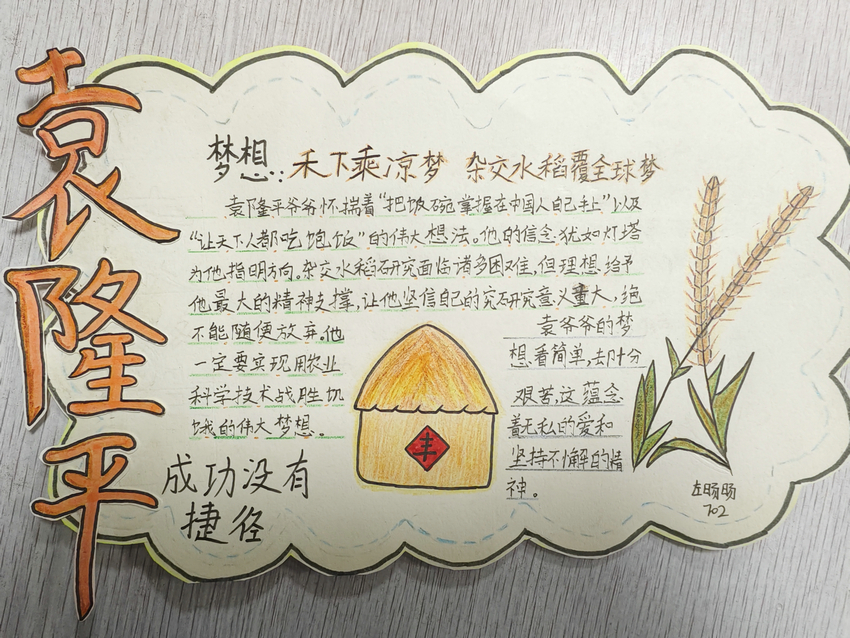 袁隆平
梦想:禾下乘凉梦 杂交水稻覆全球梦
袁隆平爷爷怀揣着“把饭碗掌握在中国人自己手上”以及
“让天下人都吃饱饭”的伟大想法。他的信念犹如灯塔
为他指明方向。杂交水稻研究面临诸多困难,但理想给予
他最大的精神支撑,让他坚信自己的究研究意义重大,绝
不能随便放弃。他
一定要实现用农业
科学技术战胜饥
饿的伟大梦想。
袁爷爷的梦
想看简单,却十分
艰苦,这蕴念
着无私的爱和
坚持不懈的精
神。
丰
成功没有
捷径
左旸旸
702